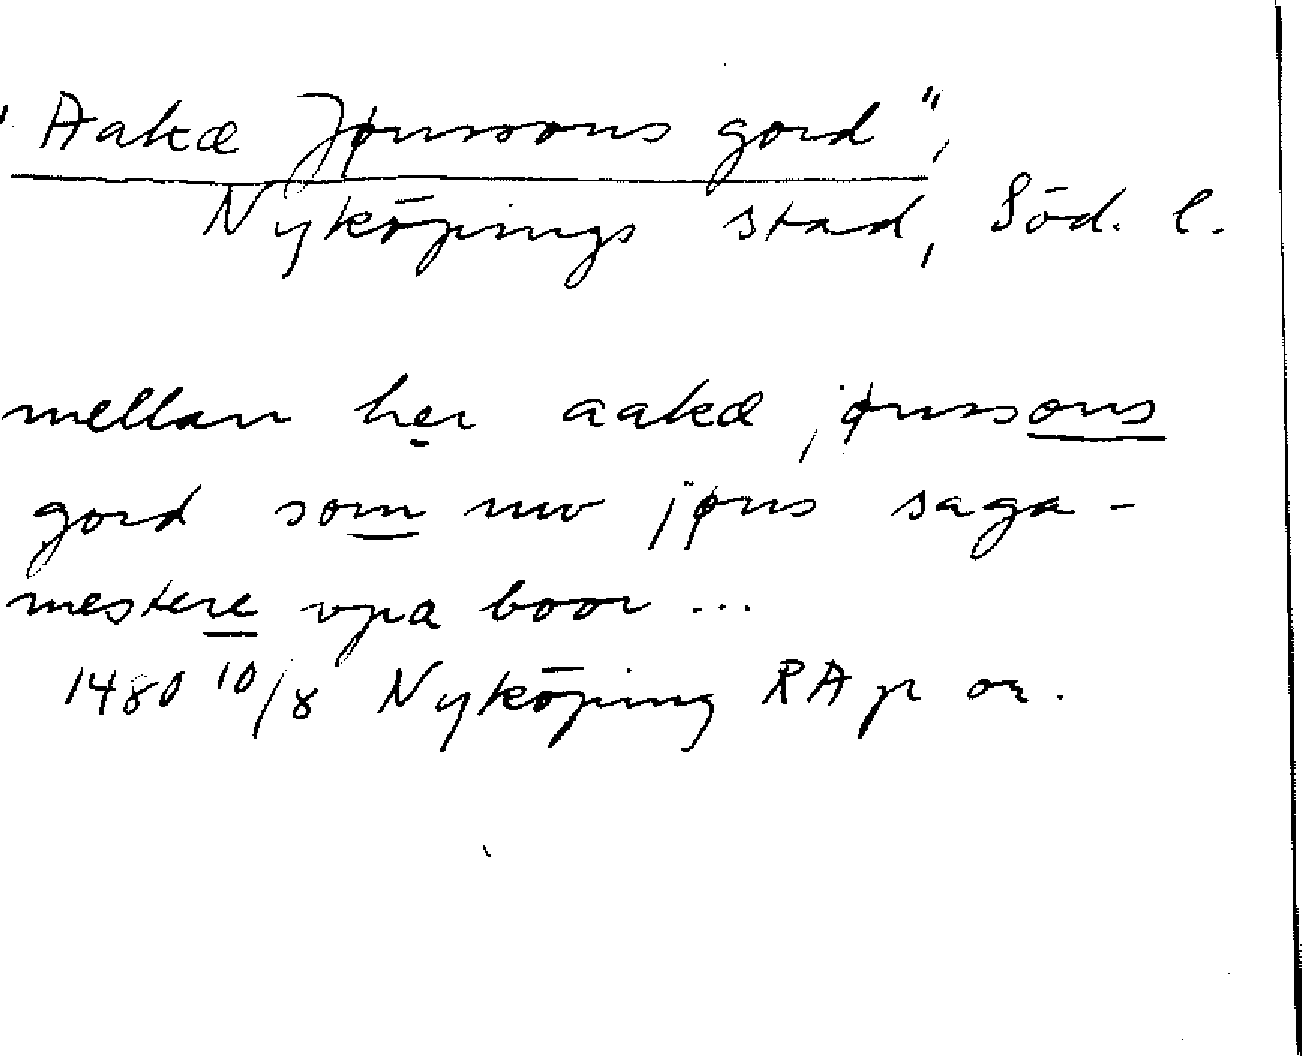 "Aakæ Jønssons gord",
Nyköpings stad, Söd. l.
mellan her aakæ jønssons
gord som nw jøns saga-
mestere vpa boor ...
1480 10/8 Nyköping RAp or.